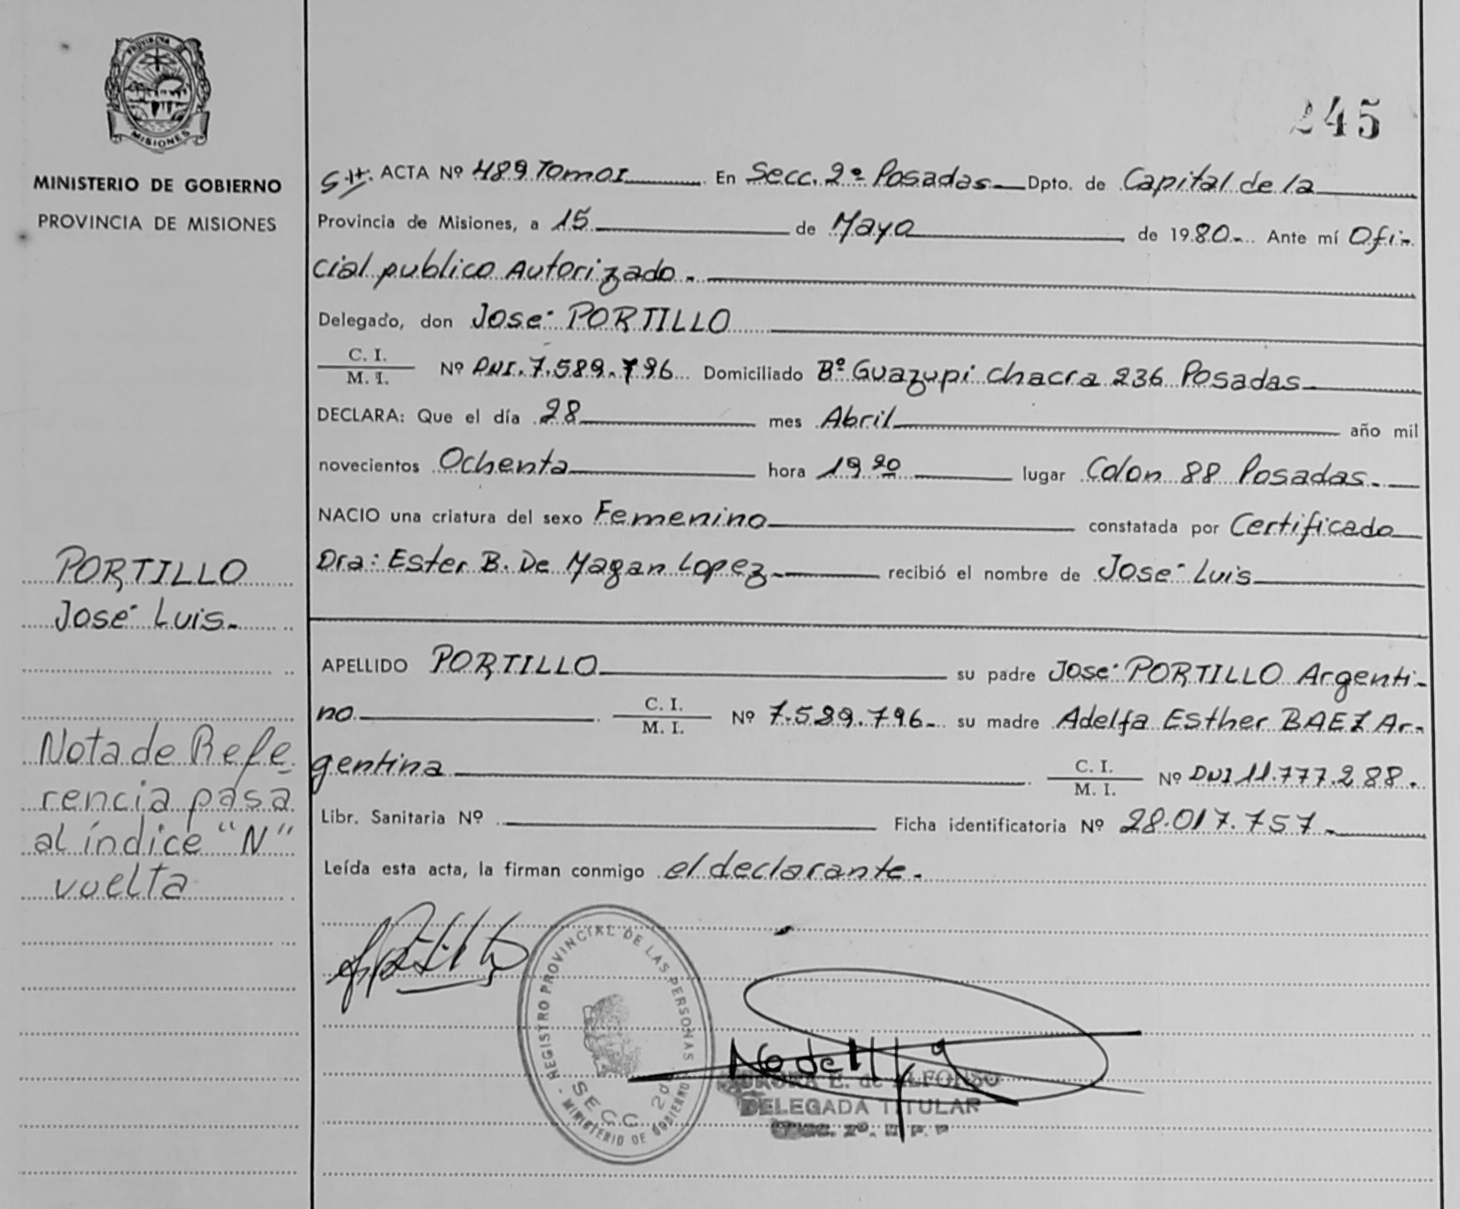 PROVINCIA DE
MISIONES
MINISTERIO DE GOBIERNO
PROVINCIA DE MISIONES
245
ACTA Nº 489 Tomo I En Secc. 2ª Posadas Dpto. de Capital de la
Provincia de Misiones, a 15 de Mayo de 1980. Ante mí Ofi-
cial publico Autorizado.
Delegado, don Jose PORTILLO
C. I.
M. I. Nº DNI. 7.589.796 Domiciliado Bº Guazupi Chacra 236 Posadas
DECLARA: Que el día 28 mes Abril año mil
novecientos Ochenta hora 19 20 lugar Colon 88 Posadas.
NACIO una criatura del sexo Femenino constatada por Certificado
Dra: Ester B. De Magan Lopez recibió el nombre de José Luis
APELLIDO PORTILLO su padre José PORTILLO Argenti-
no. C. I.
M. I. Nº 7.589.796 su madre Adelfa Esther BAEZ Ar-
gentina C. I.
M. I. Nº DNI 11.777.288.
Libr. Sanitaria Nº Ficha identificatoria Nº 28.017.757
Leída esta acta, la firman conmigo el declarante.
PORTILLO
José Luis
Nota de Refe
rencia pasa
al índice "N"
vuelta
REGISTRO PROVINCIAL DE LAS PERSONAS
SECC 2d
MINISTERIO DE GOBIERNO
E. de ALFONSO
DELEGADA TITULAR